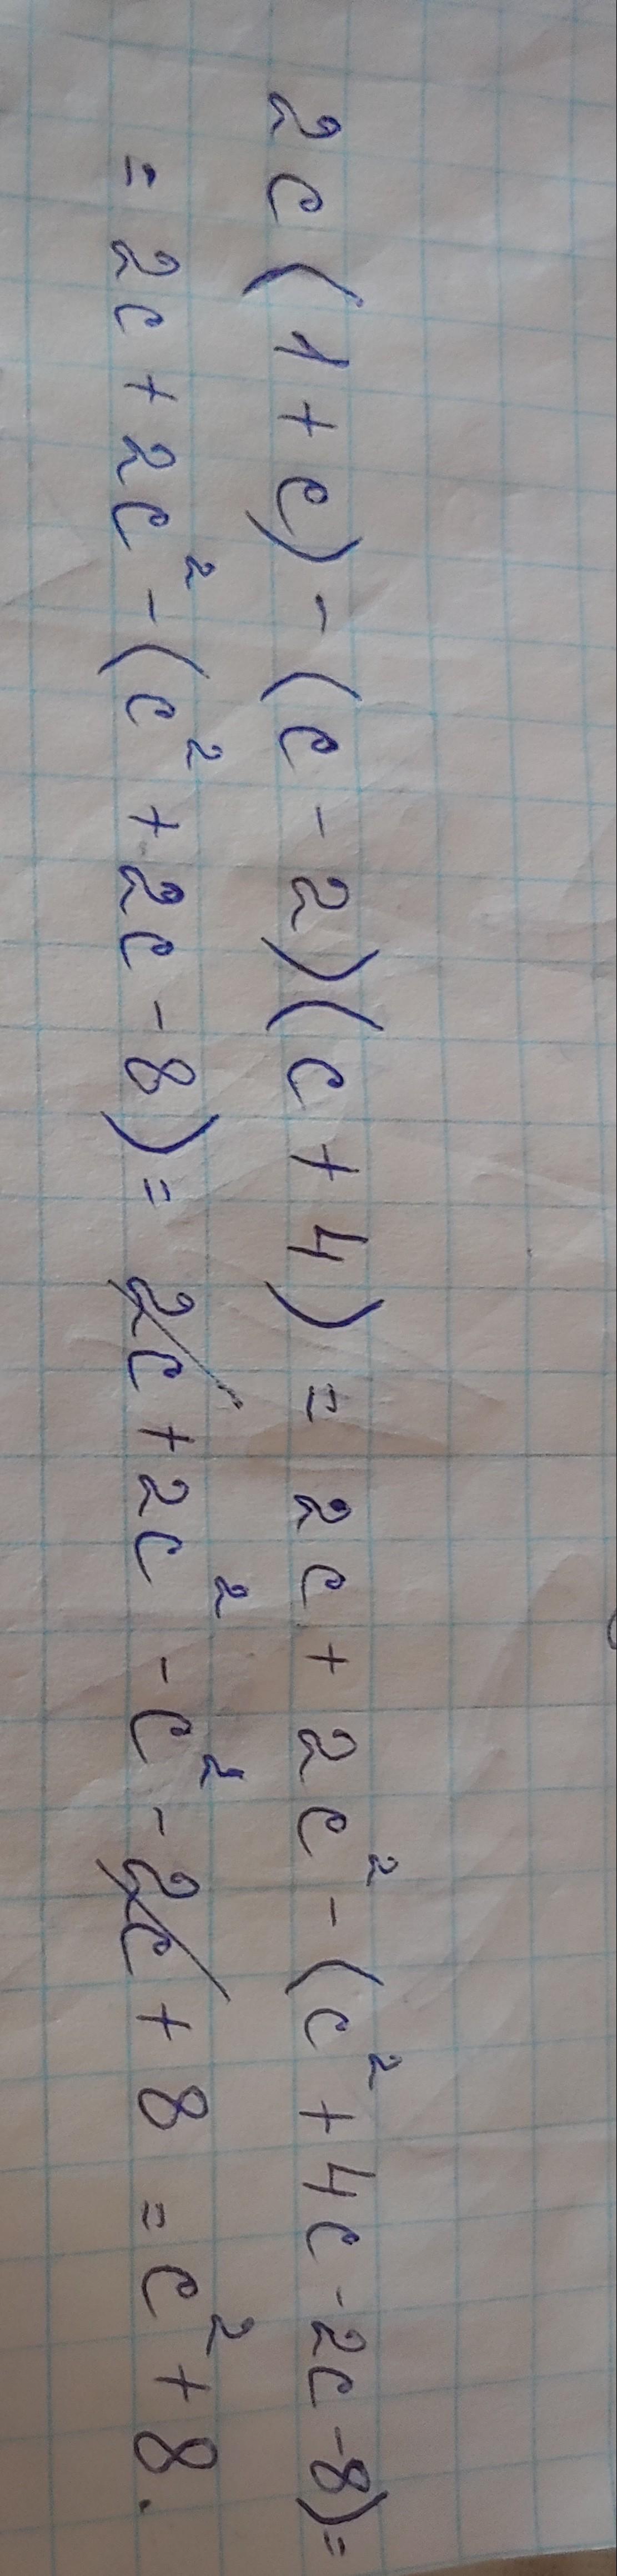 2c(1+c)-(c-2)(c+4)=2c+2c²-(c²+4c-2c-8)=
=2c+2c²-(c²+2c-8)=2c+2c²-c²-2c+8=c²+8.